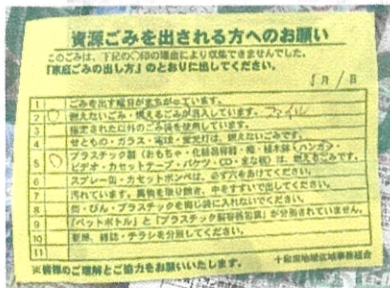 資源ごみを出される方へのお願い
このごみは、下記の○印の理由により収集できませんでした。
「家庭ごみの出し方」のとおりに出してください。
月 / 日
1 ごみを出す曜日がまちがっています。
2 ○ 燃えないごみ・燃えるごみが混入しています。 ファイル
3 指定された以外のごみ袋を使用しています。
4 せともの・ガラス・電球・蛍光灯は、燃えないごみです。
5 ○ プラスチック製(おもちゃ・化粧品容器・鉢・植木鉢・ハンガー・
ビデオ・カセットテープ・バケツ・CD・まな板)は、燃えるごみです。
6 スプレー缶・カセットボンベは、必ず穴をあけてください。
7 汚れています。異物を取り除き、中をすすいで出してください。
8 缶・びん・プラスチックを同じ袋に入れないでください。
9 「ペットボトル」と「プラスチック製容器包装」が分別されていません。
10 新聞、雑誌・チラシを分別してください。
11
※皆様のご理解とご協力をお願いいたします。
十和田地域広域事務組合